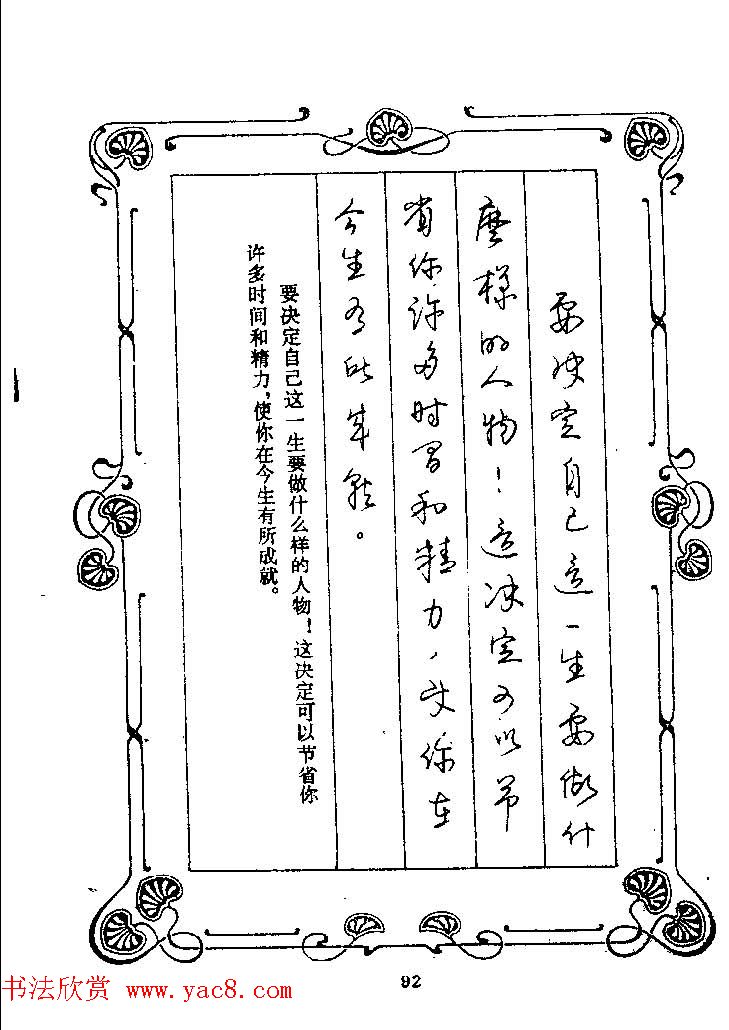 要决定自己这一生要做什
麽样的人物！这决定可以节
省你许多时间和精力，使你在
今生有所成就。
要决定自己这一生要做什么样的人物！这决定可以节省你
许多时间和精力，使你在今生有所成就。
92
书法欣赏 www.yac8.com